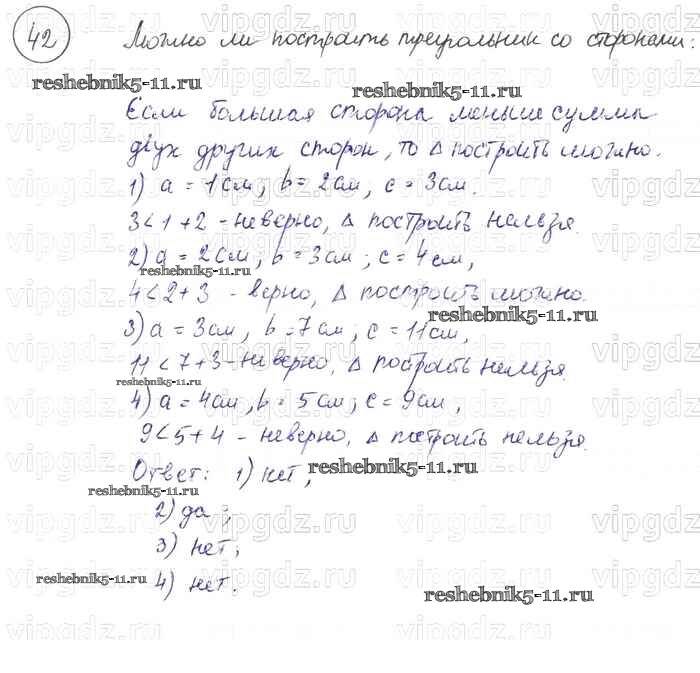 42 Можно ли построить треугольник со сторонами:
reshebnik5-11.ru reshebnik5-11.ru
Если большая сторона меньше суммы
двух других сторон, то Δ построить можно.
1) a = 1см, b = 2см, c = 3см.
3 < 1 + 2 - неверно, Δ построить нельзя.
2) a = 2см, b = 3см, c = 4см,
reshebnik5-11.ru
4 < 2 + 3 - верно, Δ построить можно.
reshebnik5-11.ru
3) a = 3см, b = 7см, c = 11см,
11 < 7 + 3 - неверно, Δ построить нельзя.
reshebnik5-11.ru
4) a = 4см, b = 5см, c = 9см,
9 < 5 + 4 - неверно, Δ построить нельзя.
Ответ: 1) нет,
reshebnik5-11.ru
reshebnik5-11.ru
2) да;
3) нет;
4) нет.
reshebnik5-11.ru
reshebnik5-11.ru
vipgdz.ru